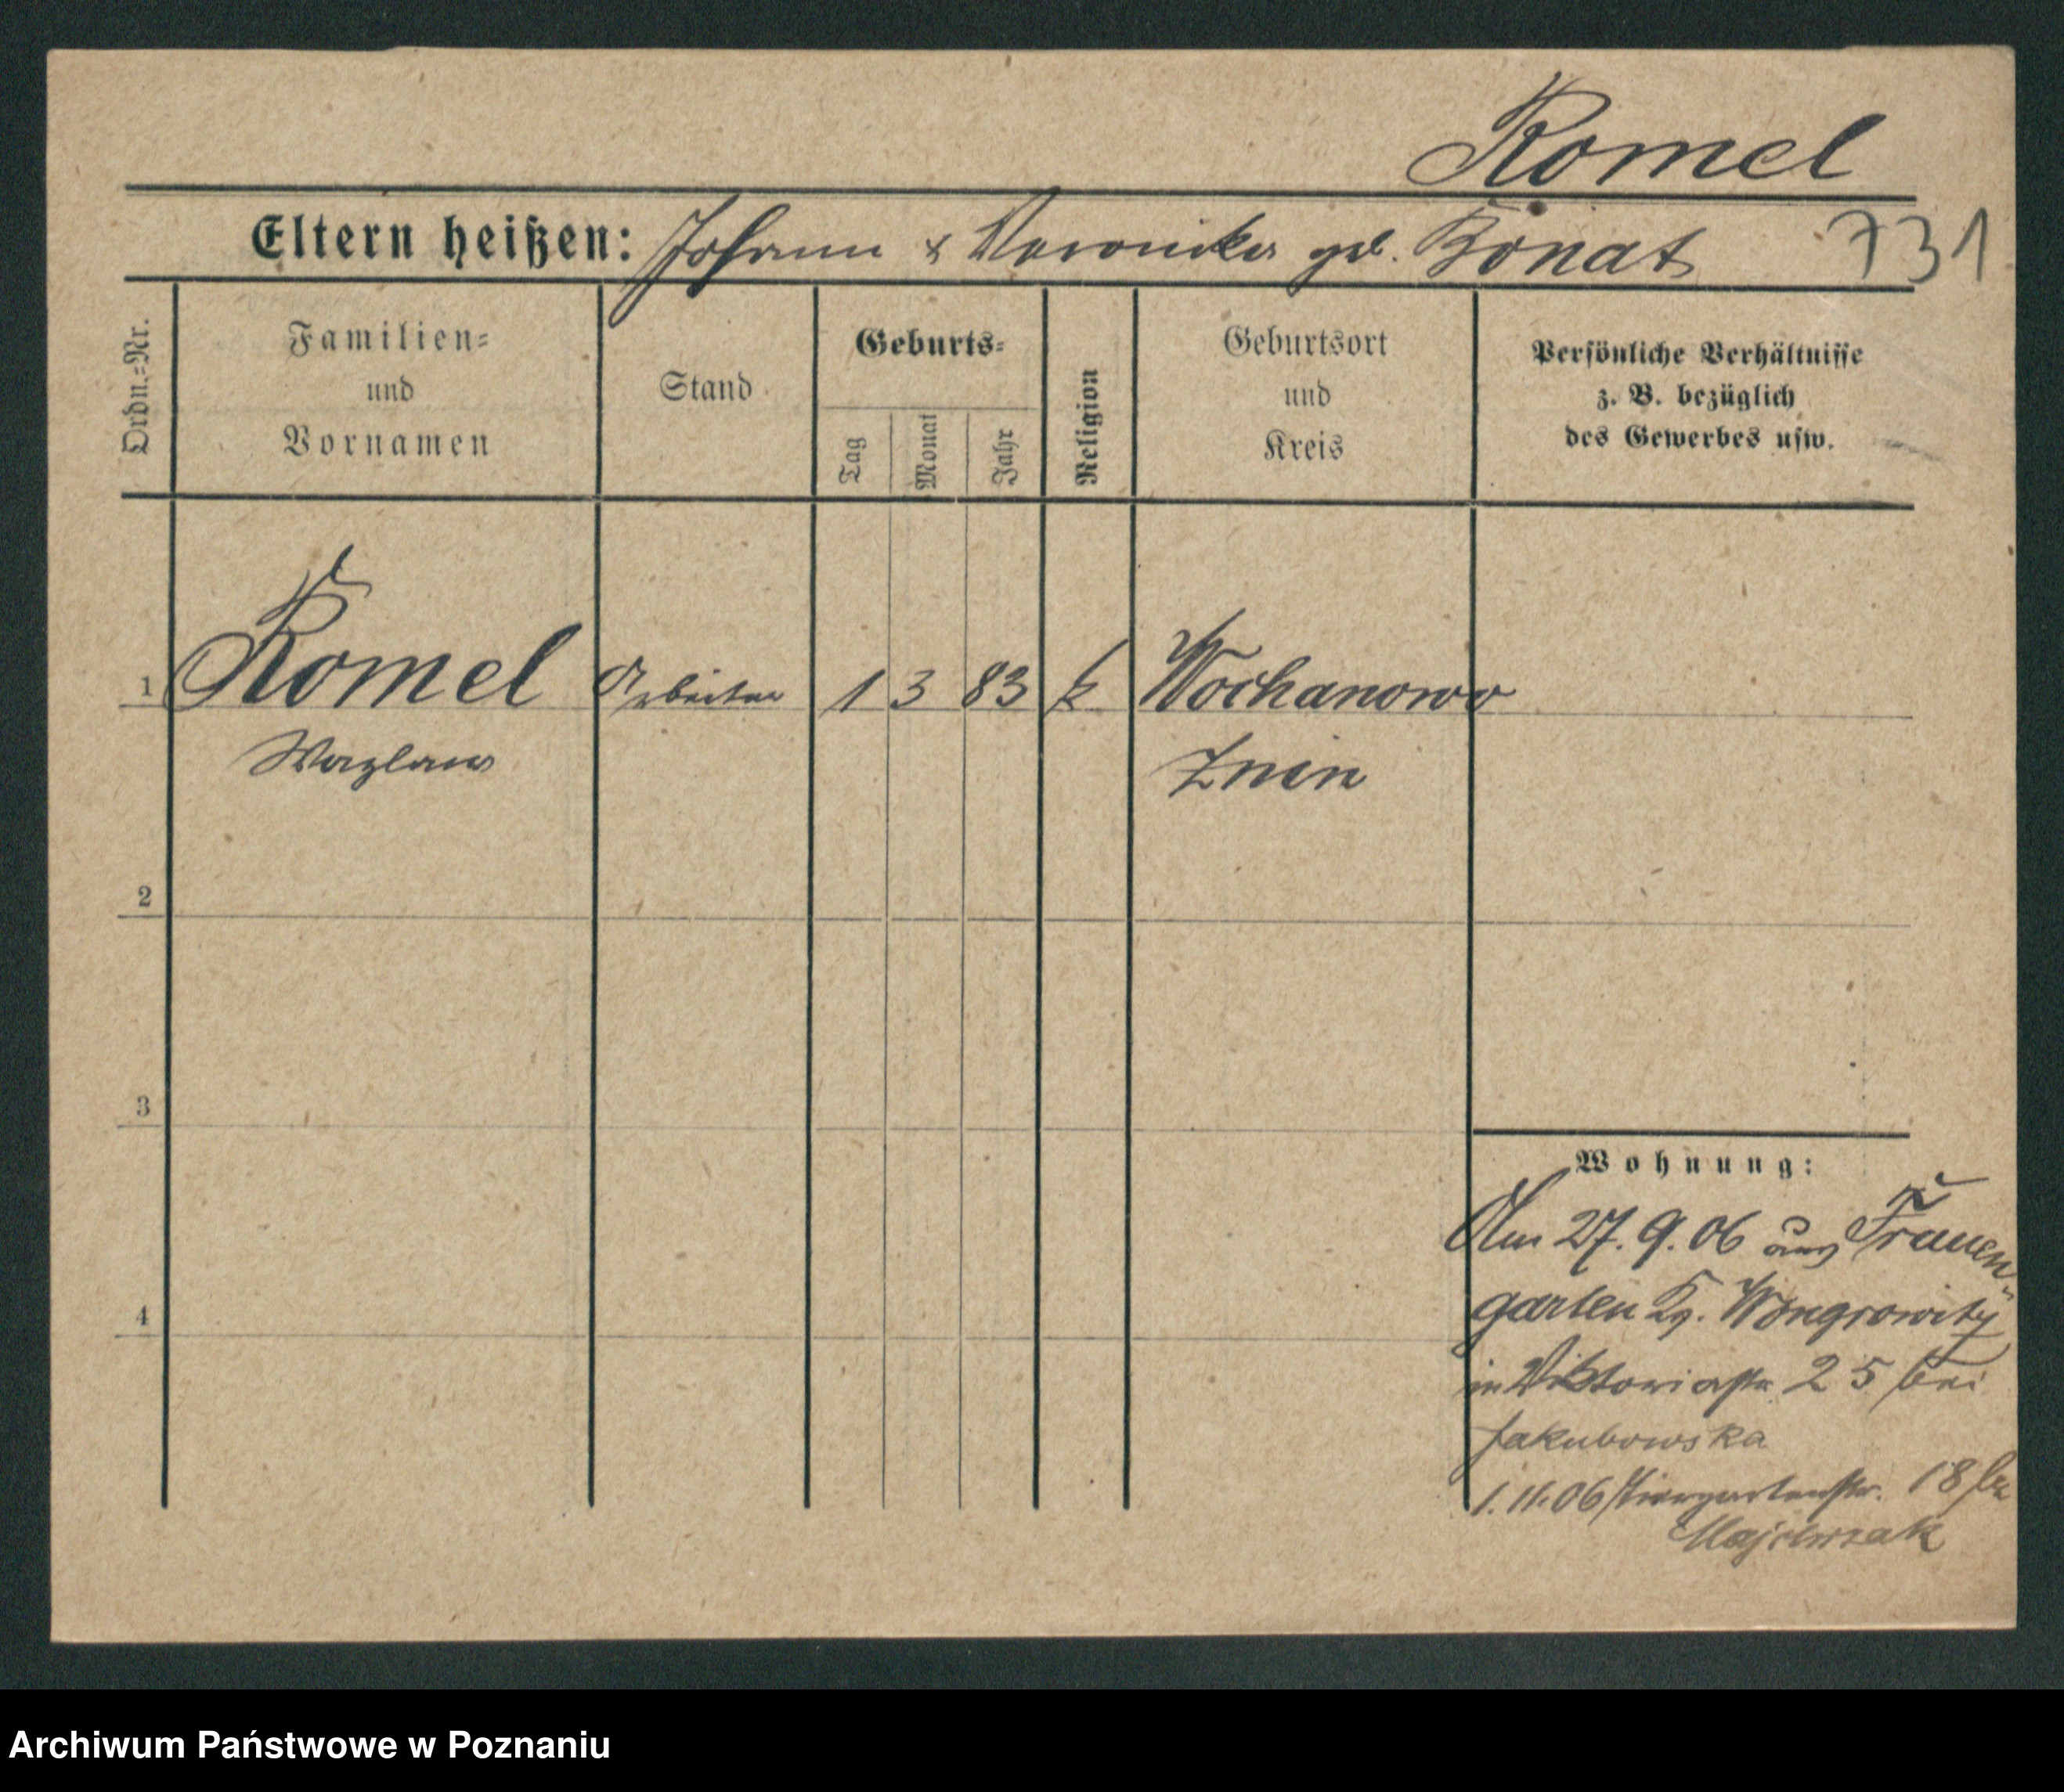 Romel
Eltern heißen: Johann & Veronika geb. Bonat 731
Ordn.=Nr. Familien= und Vornamen Stand Geburts= Tag Monat Jahr Religion Geburtsort und Kreis Persönliche Verhältnisse z. B. bezüglich des Gewerbes usw.
1 Romel Arbeiter 1 3 83 k Wochanowo
Wazlaw Znin
2
3
Wohnung:
Am 27. 9. 06 aus Frauen
garten Kr. Wongrowitz
4
in Viktoriastr 25 bei
Jakubowska
1. 11. 06 Tiergartenstr. 18 bei
Majchrzak
Archiwum Państwowe w Poznaniu